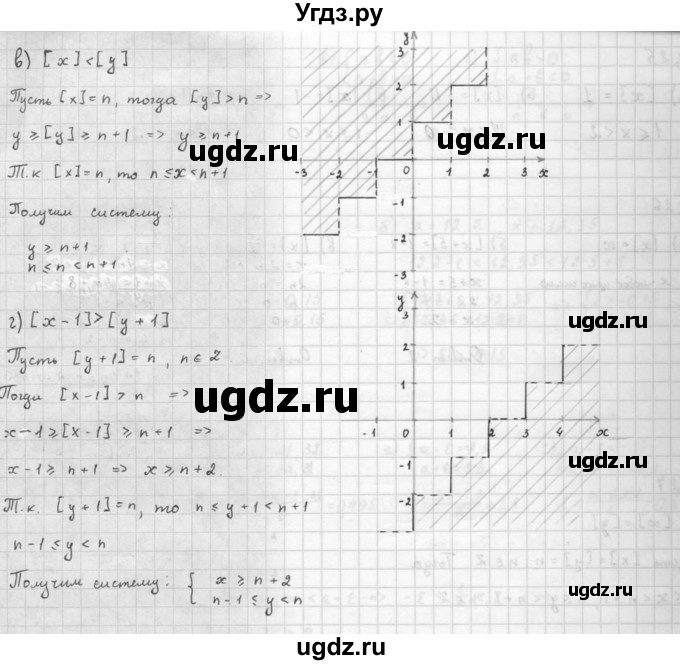 Угдз.ру
в) [x]<[y]
Пусть [x]=n, тогда [y]>n =>
y ≥ [y] ≥ n+1 => y ≥ n+1
Т.к [x]=n, то n ≤ x < n+1
Получим систему:
y ≥ n+1
n ≤ n < n+1
y
3
2
1
-3 -2 -1 0 1 2 3 x
-1
-2
-3
ugdz.ru
ugdz.ru
г) [x-1]>[y+1]
Пусть [y+1]=n, n∈Z
Тогда [x-1]>n =>
x-1≥[x-1] ≥ n+1 =>
x-1≥ n+1 => x ≥ n+2.
Т.к. [y+1]=n, то n ≤ y+1 < n+1
n-1 ≤ y < n
Получим систему: { x ≥ n+2
n-1 ≤ y < n
y
3
2
1
-1 0 1 2 3 4 x
-1
-2
ugdz.ru
ugdz.ru
ugdz.ru
ugdz.ru
ugdz.ru